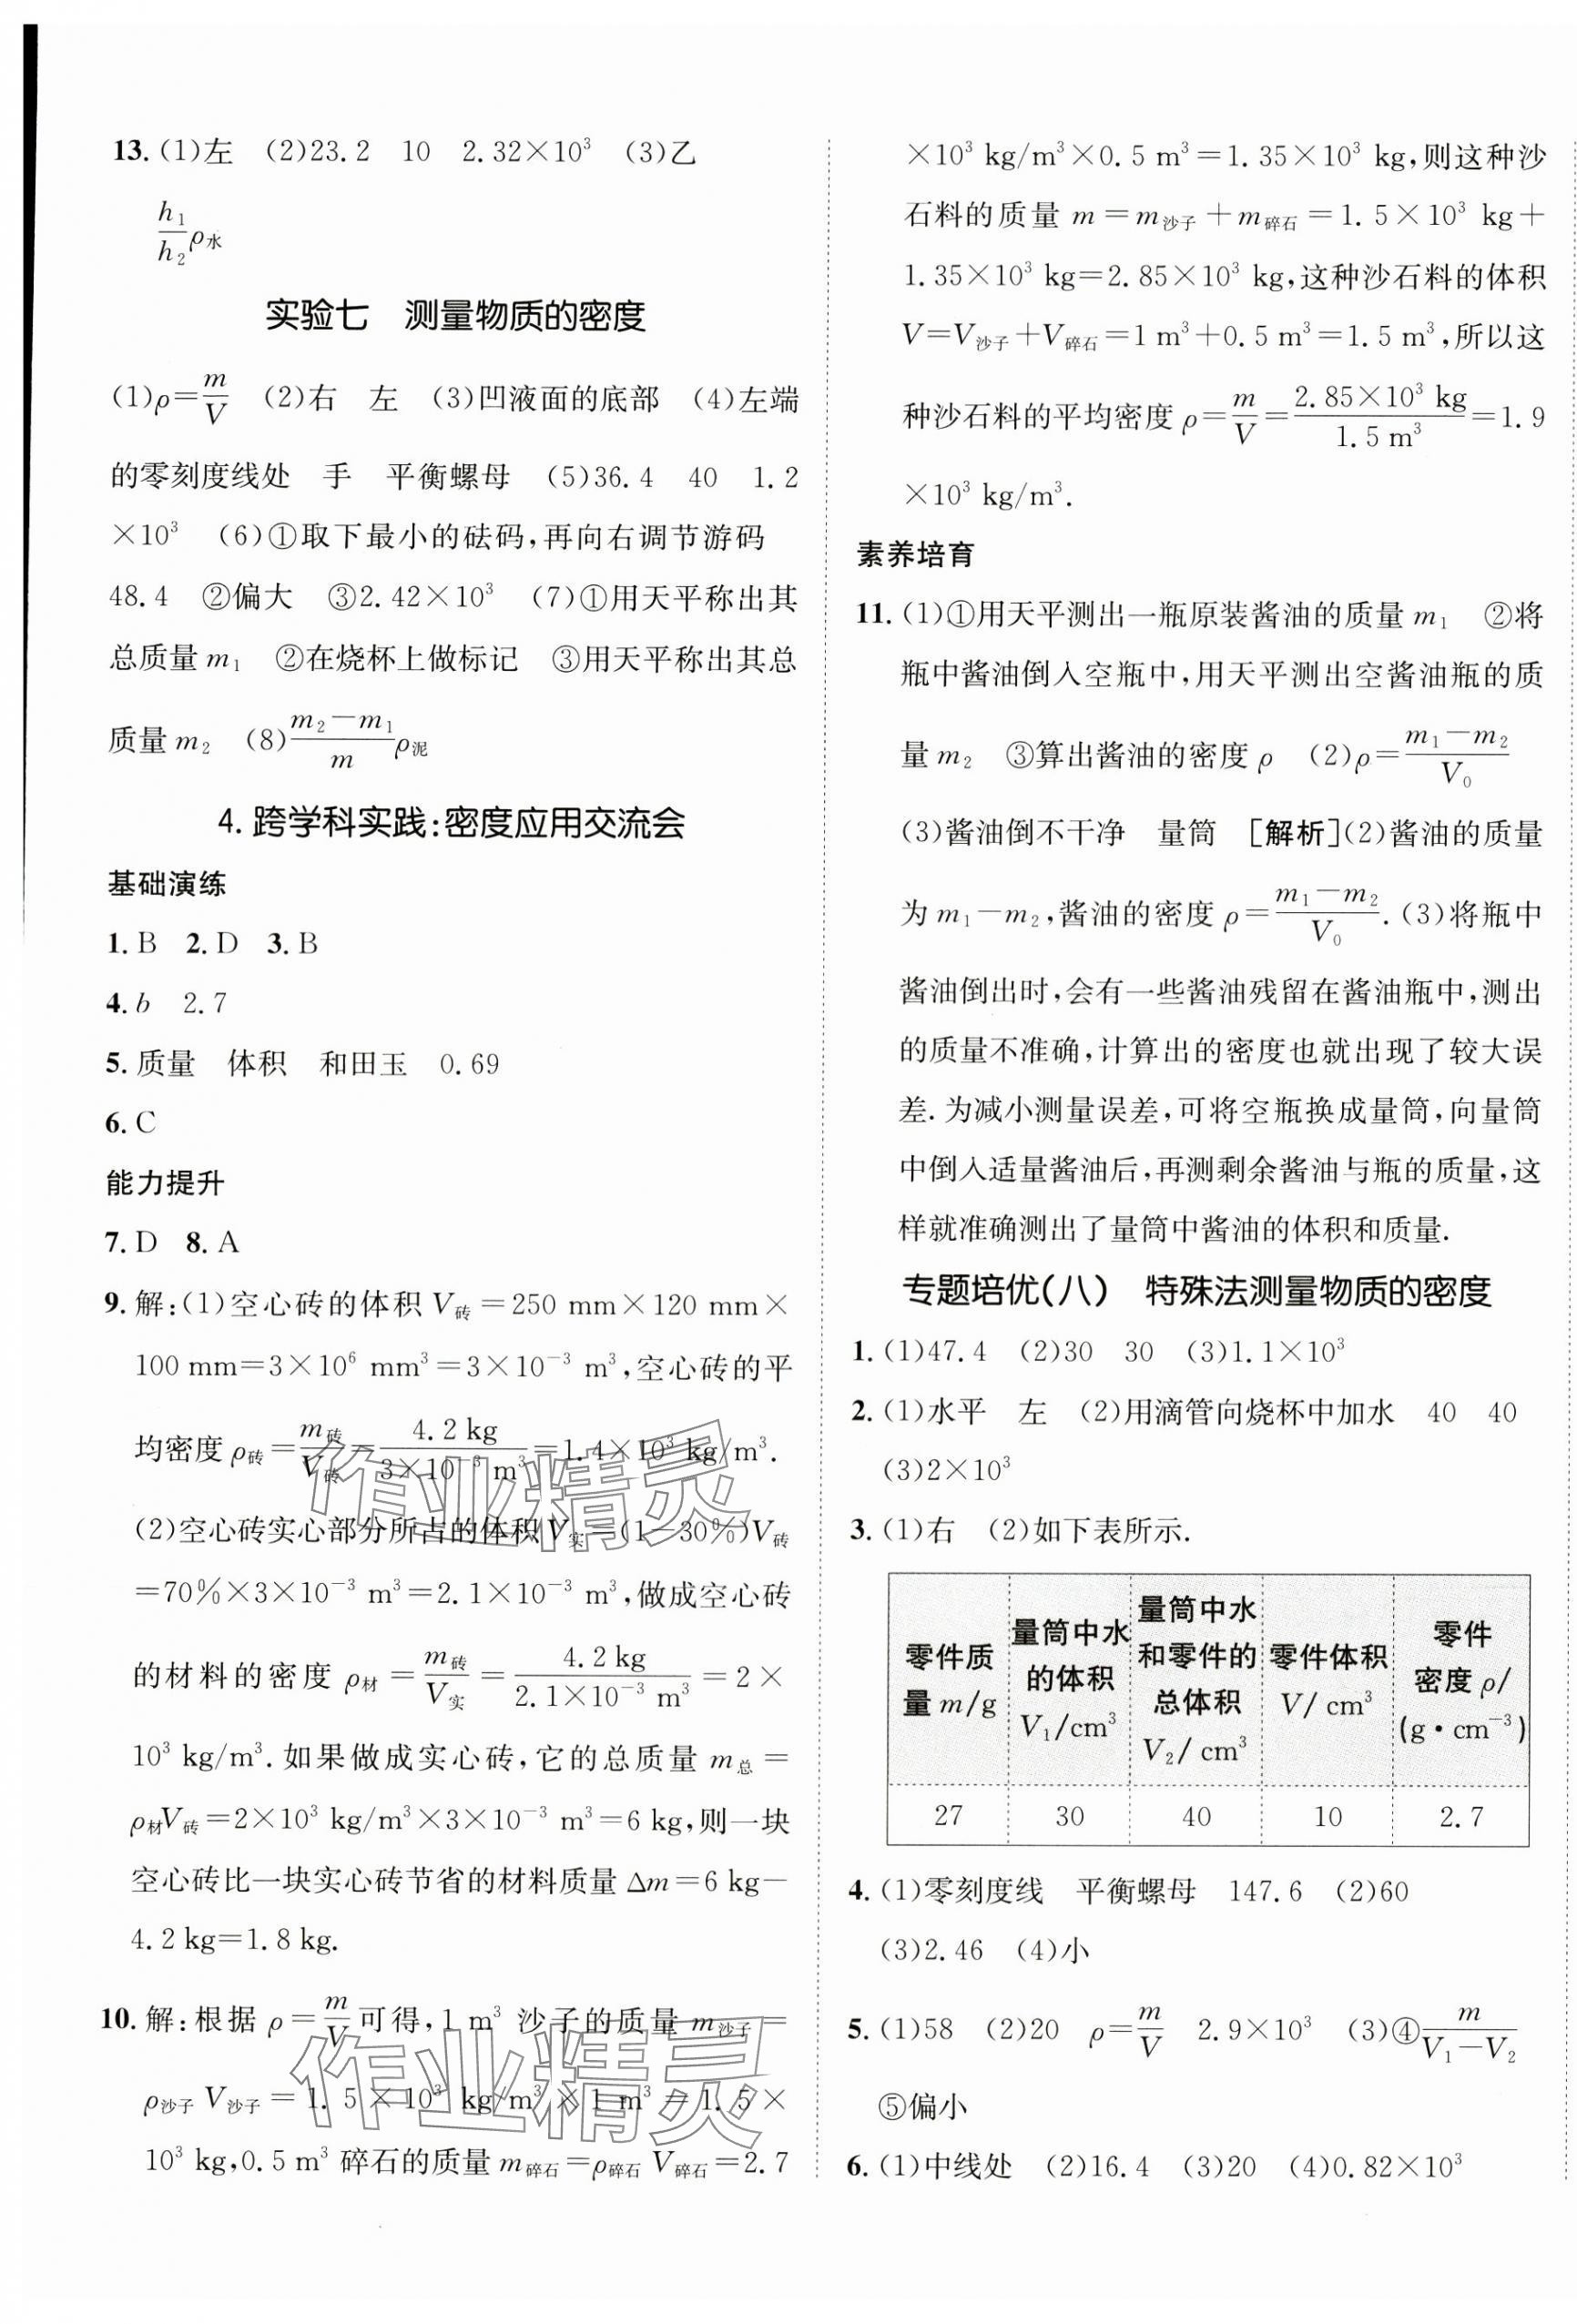 13. (1)左 (2)23.2 10 2.32×10³ (3)乙
h₁/h₂ ρ水
实验七 测量物质的密度
(1)ρ=m/V (2)右 左 (3)凹液面的底部 (4)左端
的零刻度线处 手 平衡螺母 (5)36.4 40 1.2
×10³ (6)①取下最小的砝码,再向右调节游码
48.4 ②偏大 ③2.42×10³ (7)①用天平称出其
总质量 m₁ ②在烧杯上做标记 ③用天平称出其总
质量 m₂ (8)(m₂-m₁)/m ρ泥
4. 跨学科实践:密度应用交流会
基础演练
1. B 2. D 3. B
4. b 2.7
5. 质量 体积 和田玉 0.69
6. C
能力提升
7. D 8. A
9. 解:(1)空心砖的体积 V砖=250 mm×120 mm×
100 mm=3×10⁶ mm³=3×10⁻³ m³,空心砖的平
均密度 ρ砖=m砖/V砖=4.2 kg/(3×10⁻³ m³)=1.4×10³ kg/m³.
(2)空心砖实心部分所占的体积 V实=(1-30%)V砖
=70%×3×10⁻³ m³=2.1×10⁻³ m³,做成空心砖
的材料的密度 ρ材=m砖/V实=4.2 kg/(2.1×10⁻³ m³)=2×
10³ kg/m³.如果做成实心砖,它的总质量 m总=
ρ材V砖=2×10³ kg/m³×3×10⁻³ m³=6 kg,则一块
空心砖比一块实心砖节省的材料质量 Δm=6 kg-
4.2 kg=1.8 kg.
10. 解:根据 ρ=m/V可得,1 m³ 沙子的质量 m沙子=
ρ沙子 V沙子=1.5×10³ kg/m³×1 m³=1.5×
10³ kg,0.5 m³ 碎石的质量 m碎石=ρ碎石 V碎石=2.7
×10³ kg/m³×0.5 m³=1.35×10³ kg,则这种沙
石料的质量 m=m沙子+m碎石=1.5×10³ kg+
1.35×10³ kg=2.85×10³ kg,这种沙石料的体积
V=V沙子+V碎石=1 m³+0.5 m³=1.5 m³,所以这
种沙石料的平均密度 ρ=m/V=2.85×10³ kg/1.5 m³=1.9
×10³ kg/m³.
素养培育
11. (1)①用天平测出一瓶原装酱油的质量 m₁ ②将
瓶中酱油倒入空瓶中,用天平测出空酱油瓶的质
量 m₂ ③算出酱油的密度 ρ (2)ρ=(m₁-m₂)/V₀
(3)酱油倒不干净 量筒 [解析](2)酱油的质量
为 m₁-m₂,酱油的密度 ρ=(m₁-m₂)/V₀.(3)将瓶中
酱油倒出时,会有一些酱油残留在酱油瓶中,测出
的质量不准确,计算出的密度也就出现了较大误
差.为减小测量误差,可将空瓶换成量筒,向量筒
中倒入适量酱油后,再测剩余酱油与瓶的质量,这
样就准确测出了量筒中酱油的体积和质量.
专题培优(八) 特殊法测量物质的密度
1. (1)47.4 (2)30 30 (3)1.1×10³
2. (1)水平 左 (2)用滴管向烧杯中加水 40 40
(3)2×10³
3. (1)右 (2)如下表所示.
零件质量 m/g 量筒中水的体积 V₁/cm³ 量筒中水和零件的总体积 V₂/ cm³ 零件体积 V/ cm³ 零件密度 ρ/(g·cm⁻³)
27 30 40 10 2.7
4. (1)零刻度线 平衡螺母 147.6 (2)60
(3)2.46 (4)小
5. (1)58 (2)20 ρ=m/V 2.9×10³ (3)④m/(V₁-V₂)
⑤偏小
6. (1)中线处 (2)16.4 (3)20 (4)0.82×10³
作业精灵
作业精灵